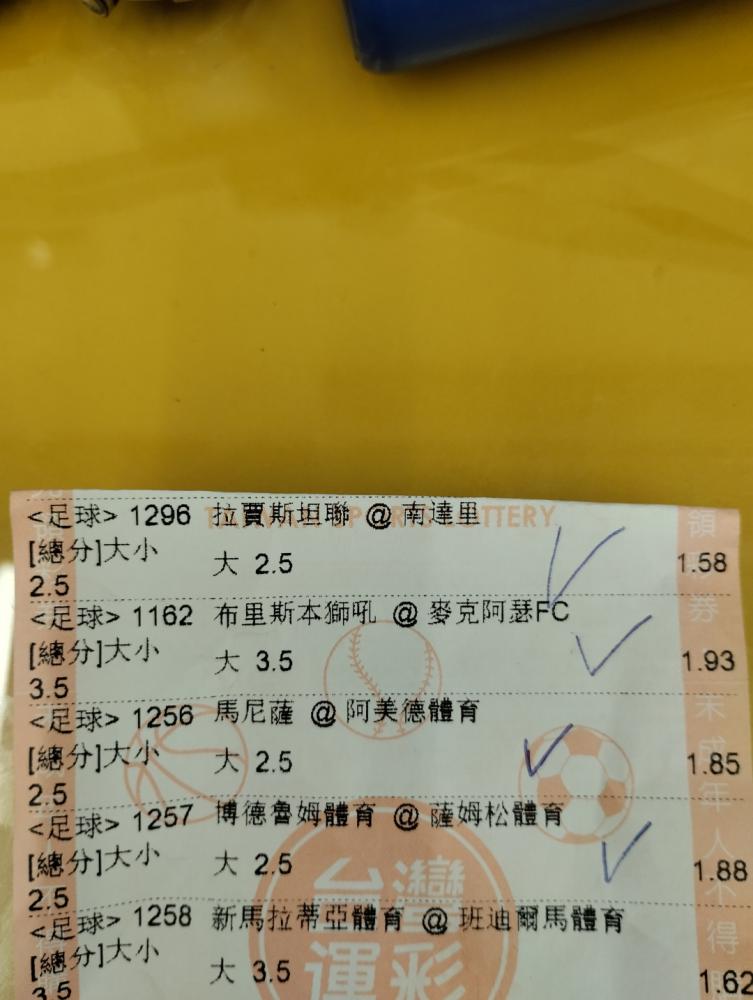 <足球> 1296 拉賈斯坦聯 @ 南達里
[總分]大小 大 2.5 1.58
2.5
<足球> 1162 布里斯本獅吼 @ 麥克阿瑟FC
[總分]大小 大 3.5 1.93
3.5
<足球> 1256 馬尼薩 @ 阿美德體育
[總分]大小 大 2.5 1.85
2.5
<足球> 1257 博德魯姆體育 @ 薩姆松體育
[總分]大小 大 2.5 1.88
2.5
<足球> 1258 新馬拉蒂亞體育 @ 班迪爾馬體育
[總分]大小 大 3.5 1.62
3.5
TAIWAN SPORTS LOTTERY
台灣
運彩
領
券
未
成
年
人
不
得